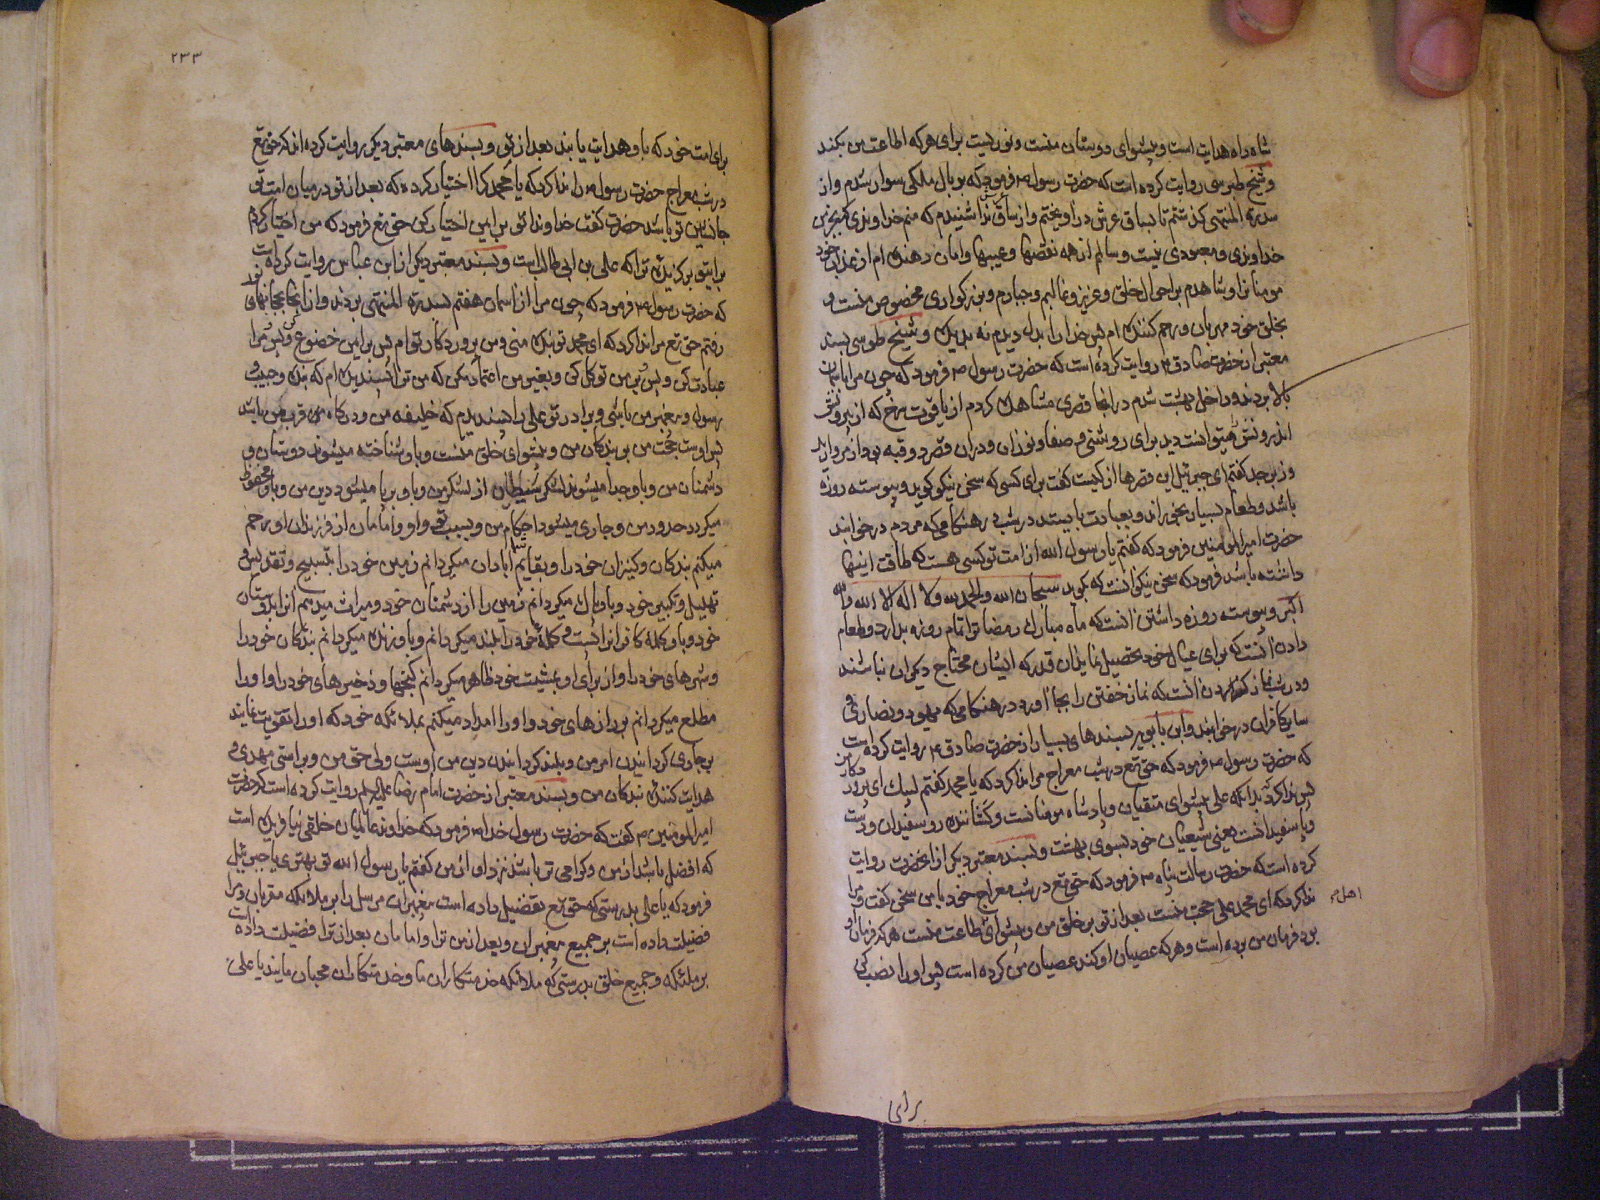 شاه راه هدایت است و پیشوای دوستان منست و نوریست برای هر که اطاعت من بکند
و شیخ طبرسی روایت کرده است که حضرت رسول ص فرمود که بر بال ملکی سوار شدم و از
سدرة المنتهی گذشتم تا بساق عرش در آویختم و از ساق عرش ندا شنیدم که منم خداوندی که بجز من
خداوندی و معبودی نیست و سالم از همه نقصها و عیبها و امان دهنده ام از عذاب خود
مومنانرا و شاهدم بر احوال خلق و عزیز و غالبم و جبارم و بزرگواری مخصوص منست و
بخلق خود مهربان و رحم کننده ام پس خدا را بدل دیدم نه بدیده و شیخ طوسی بسند
معتبر از حضرت صادق ع روایت کرده است که حضرت رسول ص فرمود که چون مرا باسمان
بالا بردند و داخل بهشت شدم در انجا قصری مشاهده کردم از یاقوت سرخ که از بیرونش
اندرونش میتوانست دید برای روشنی و صفا و نور آن و دران قصر دو قبه بود از مروارید
و زبرجد گفتم ای جبرئیل این قصرها از کیست گفت برای کسی که سخن نیکو گوید و پیوسته روزه
باشد و طعام بسیار بخوراند و بعبادت بایستد در شب در هنگامی که مردم در خوابند
حضرت امیر المومنین فرمود که گفتم یا رسول الله از امت تو کسی هست که طاقت اینها
داشته باشد فرمود که سخن نیکو آنست که بگوید سبحان الله و الحمد لله و لا اله الا الله و الله
اکبر و پیوسته روزه داشتن انست که ماه مبارک رمضانرا تمام روزه بدارد و طعام
دادن انست که برای عیال خود تحصیل نماید ان قدر که ایشان محتاج دیگران نباشند
و در شب نماز کردن انست که نماز خفتن را بجا آورد در هنگامی که یهود و نصاری و
سایر کافران در خوابند و ابن بابویه بسندهای بسیار از حضرت صادق ع روایت کرده است
که حضرت رسول ص فرمود که حق تع در شب معراج مرا ندا کرد که یا محمد گفتم لبیک ای پرورد کار من
پس ندا کرد بدانکه علی پیشوای متقیان و پادشاه مومنانست و کشاننده رو سفیدان و دست
و پا سفیدانست یعنی شیعیان خود بسوی بهشت و بسند معتبر دیگر از انحضرت روایت
کرده است که حضرت رسالت پناه ص فرمود که حق تع در شب معراج خود با من سخن گفت و مرا
ندا کرد که ای محمد علی حجت منست بعد از تو بر خلق من و پیشوای اطاعت منست هر که فرمان او
برد فرمان من برده است و هر که عصیان او کند عصیان من کرده است پس او را نصب کن
اهل
برای
۲۳۳
برای امت خود که باو هدایت یابند بعد از تو و بسندهای معتبر دیگر روایت کرده اند که حق تع
در شب معراج حضرت رسول ص را ندا کرد که یا محمد کرا اختیار کرده که بعد از تو در میان امت تو
جانشین تو باشد حضرت گفت خداوندا تو برایم اختیار کن حق تع فرمود که من اختیار کردم
برای تو برگزیده ترا که علی بن ابی طالب است و بسند معتبر دیگر از ابن عباس روایت کرده است
که حضرت رسول ص فرمود که چون مرا از اسمان هفتم بسدرة المنتهی بردند و از انجا بحجابهای نور
رفتم حق تع مرا ندا کرد که ای محمد تو بنده منی و من پروردکار توام پس برای من خضوع کن و پس مرا
عبادت کن و پس بر من توکل کن و بغیر من اعتماد مکن که من ترا پسندیده ام که بنده و حبیب و
رسول و پیغمبر من باشی و برادر تو علی را پسندیدم که خلیفه من و درکاه من قرب من باشد
پس اوست حجت من بر بندکان من و پیشوای خلق منست و باو شناخته میشوند دوستان و
دشمنان من و باو جدا میشوند لشکر شیطان از لشکر من و باو برپا میشود دین من و باو محفوظ
میگردد حدود من و جاری میشود احکام من و بسبب تو و او و امامان از فرزندان او رحم
میکنم بندکان و کنیزان خود را و بقایم شما آبادان میکردانم زمین خود را بتسبیح و تقدیس و
تهلیل و تکبیر خود و باو پاک میکردانم زمین را از دشمنان خود و میراث میدهم انرا بدوستان
خود و باو کلمه کافرانرا پست و کلمه خود را بلند میکردانم و باو زنده میکردانم بندکان خود را
و شهرهای خود را و از برای او بمشیت خود ظاهر میکردانم کنجها و ذخیرهای خود را و او را
مطلع میکردانم بر رازهای خود و او را امداد میکنم بملائکه خود که او را تقویت نمایند
بر جاری کردانیدن امر من و بلند کردانیدن دین من اوست ولی حق من و براستی مهدی و
هدایت کننده بندکان من و بسند معتبر از حضرت امام رضا علیه السلم روایت کرده است که حضرت
امیر المومنین ع گفت که حضرت رسول خدا ص فرمود که خداوند عالمیان خلقی نیافریده است
که افضل باشد از من و کرامی تر باشد نزد او از من گفتم یا رسول الله تو بهتری یا جبرئیل
فرمود که یا علی بدرستی که حق تع تفضیل داده است پیغمبران مرسل را بر ملائکه مقربان و مرا
فضیلت داده است بر جمیع پیغمبران و بعد از من ترا و امامان بعد از ترا فضیلت داده
بر ملئکه و جمیع خلق بدرستی که ملائکه خدمتکاران ما و خدمتکاران محبان مایند یا علی